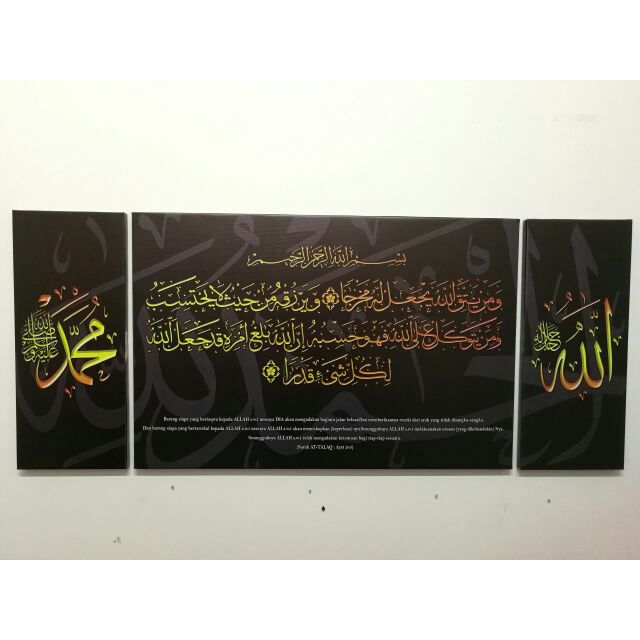 الله جل جلاله
بسم الله الرحمن الرحيم
ومن يتق الله يجعل له مخرجا ويرزقه من حيث لا يحتسب
ومن يتوكل على الله فهو حسبه إن الله بالغ أمره قد جعل الله
لكل شيء قدرا
Barang siapa yang bertaqwa kepada ALLAH s.w.t nescaya DIA akan mengadakan baginya jalan keluar.Dan memberikannya rezeki dari arah yang tidak disangka-sangka.
Dan barang siapa yang bertawakal kepada ALLAH s.w.t nescaya ALLAH s.w.t akan mencukupkan (keperluan) nya.Sesungguhnya ALLAH s.w.t melaksanakan urusan (yang dikehendakin) Nya.
Sesungguhnya ALLAH s.w.t telah mengadakan ketentuan bagi tiap-tiap sesuatu.
(Surah AT-TALAQ : Ayat 2-3)
محمد صلى الله عليه وسلم